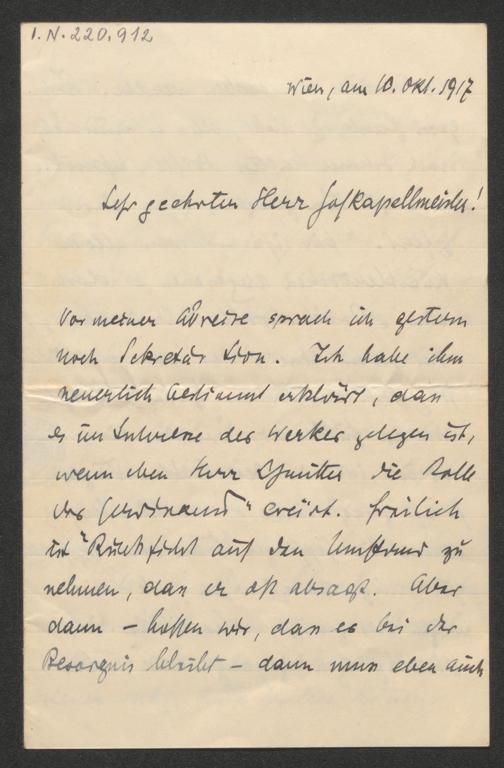 I.N. 220.912
Wien, am 10. Okt. 1917
Sehr geehrter Herr Hofkapellmeister!
Vor meiner Abreise sprach ich gestern
noch Sekretär Lion. Ich habe ihm
neuerlich bestimmt erklärt, dass
es im Interesse des Werkes gelegen ist,
wenn eben Herr Schmitter die Rolle
des „Ferdinand“ creirt. Freilich
ist Rücksicht auf den Umstand zu
nehmen, dass er oft absagt. Aber
dann – hoffen wir, dass es bei der
Besorgnis bleibt – dann muss eben auch